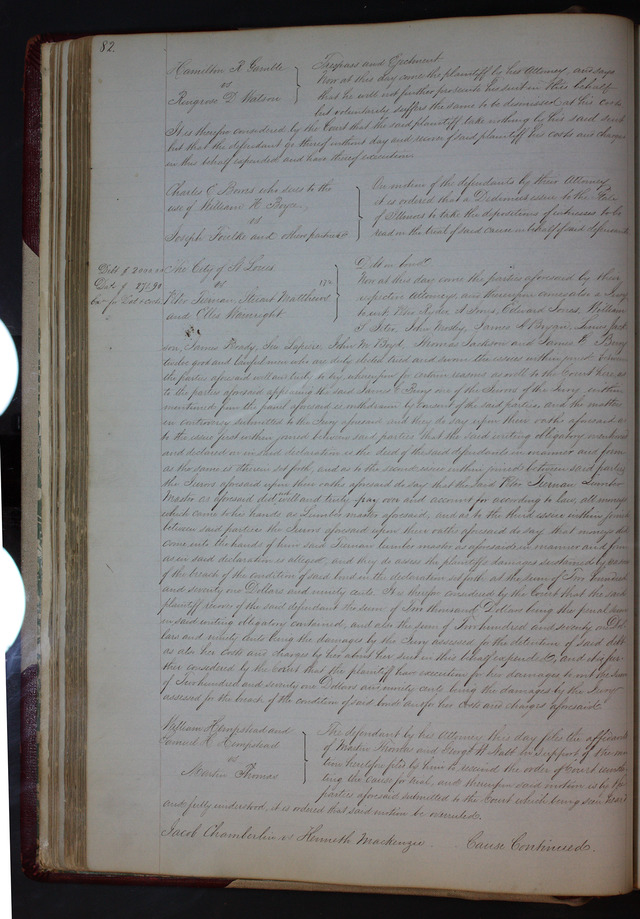 82.
Hamilton R Gamble
vs
Ringrose D Watson
Trespass and Ejectment
Now at this day came the plaintiff by his Attorney, and says
that he will not further prosecute his suit in this behalf
but voluntarily suffers the same to be dismissed at his costs
It is therefore considered by the Court that the said plaintiff take nothing by his said suit
but that the defendant go thereof without day and recover of said plaintiff his costs and charges
in this behalf expended and have thereof execution
Charles C who sues to the
use of William H
vs
Joseph and others parties
On motion of the defendants by their Attorney
it is ordered that a Dedimus issue to the State
of Illinois to take the depositions of witnesses to be
read in the trial of said cause in behalf of said defendants
The City of St Louis
vs
Peter Tiernan, Stuart Matthews
and Ellis Wainright
Debt on bond
Now at this day come the parties aforesaid by their
respective Attorneys, and thereupon comes also a Jury
to wit Edward Jones, William
John James C Bryan, James
son, James John W Boyd, Thomas Jackson and James
twelve good and lawful men who are duly elected tried and sworn the issues within joined
the parties aforesaid well and truly to try whereupon for certain reasons as well to the Court here, as
to the parties aforesaid appearing the said James one of the Jurors of the Jury within
mentioned from the panel aforesaid is withdrawn by consent of the said parties, and the matters
in controversy submitted to the Jury aforesaid and they do say upon their oaths aforesaid as
to the issue first within joined between said parties that the said writing obligatory mentioned
and declared on in said declaration is the deed of the said defendants in manner and form
as the same is therein set forth, and as to the second issue within joined between said parties
the Jurors aforesaid upon their oaths aforesaid do say that the said Peter Tiernan Lumber
Master as aforesaid did not well and truly pay over and account for according to law, all moneys
which came to his hands as Lumber master aforesaid, and as to the third issue within joined
between said parties the Jurors aforesaid upon their oaths aforesaid do say that moneys did
come into the hands of him said Tiernan lumber master as aforesaid in manner and form
as in said declaration is alleged, and they do assess the plaintiffs damages sustained by reason
of the breach of the condition of said bond in the declaration set forth at the sum of Two hundred
and seventy one Dollars and ninety cents. It is therefore considered by the Court that the said
plaintiff recover of the said defendants the sum of thousand Dollars being the penal sum
in said writing obligatory contained, and also the sum of Two hundred and seventy one Dol
lars and ninety cents being the damages by the Jury assessed for the detention of said debt
as also her costs and charges by her about her suit in this behalf expended, and it is fur
ther considered by the Court that the plaintiff have execution for her damages to wit the sum
of Two hundred and seventy one Dollars and ninety cents being the damages by the Jury
assessed for the breach of the condition of said bond and for her costs and charges aforesaid
William Hempstead and
Hempstead
vs
Martin Thomas
The defendant by his Attorney this day files the affidavits
of Martin Thomas and in support of the mo
tion heretofore filed by him to rescind the order of Court
ting the cause for trial, and thereupon said motion is by the
parties aforesaid submitted to the Court which being seen heard
and fully understood, it is ordered that said motion be overruled.
Jacob Chamberlin vs Kenneth Mackenzie Cause Continued.